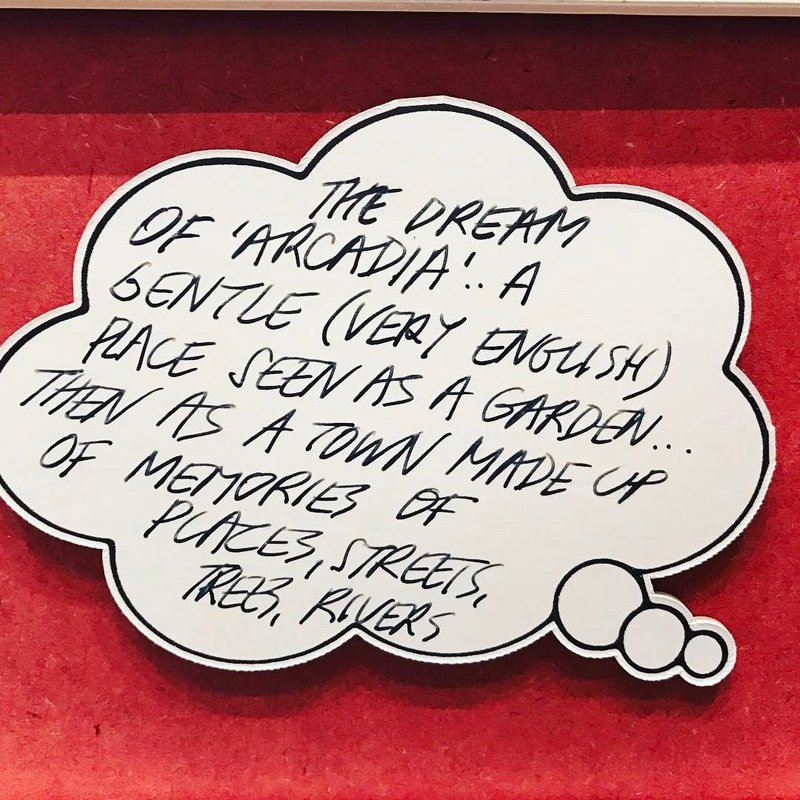 THE DREAM
OF 'ARCADIA'.. A
GENTLE (VERY ENGLISH)
PLACE SEEN AS A GARDEN...
THEN AS A TOWN MADE UP
OF MEMORIES OF
PLACES, STREETS,
TREES, RIVERS